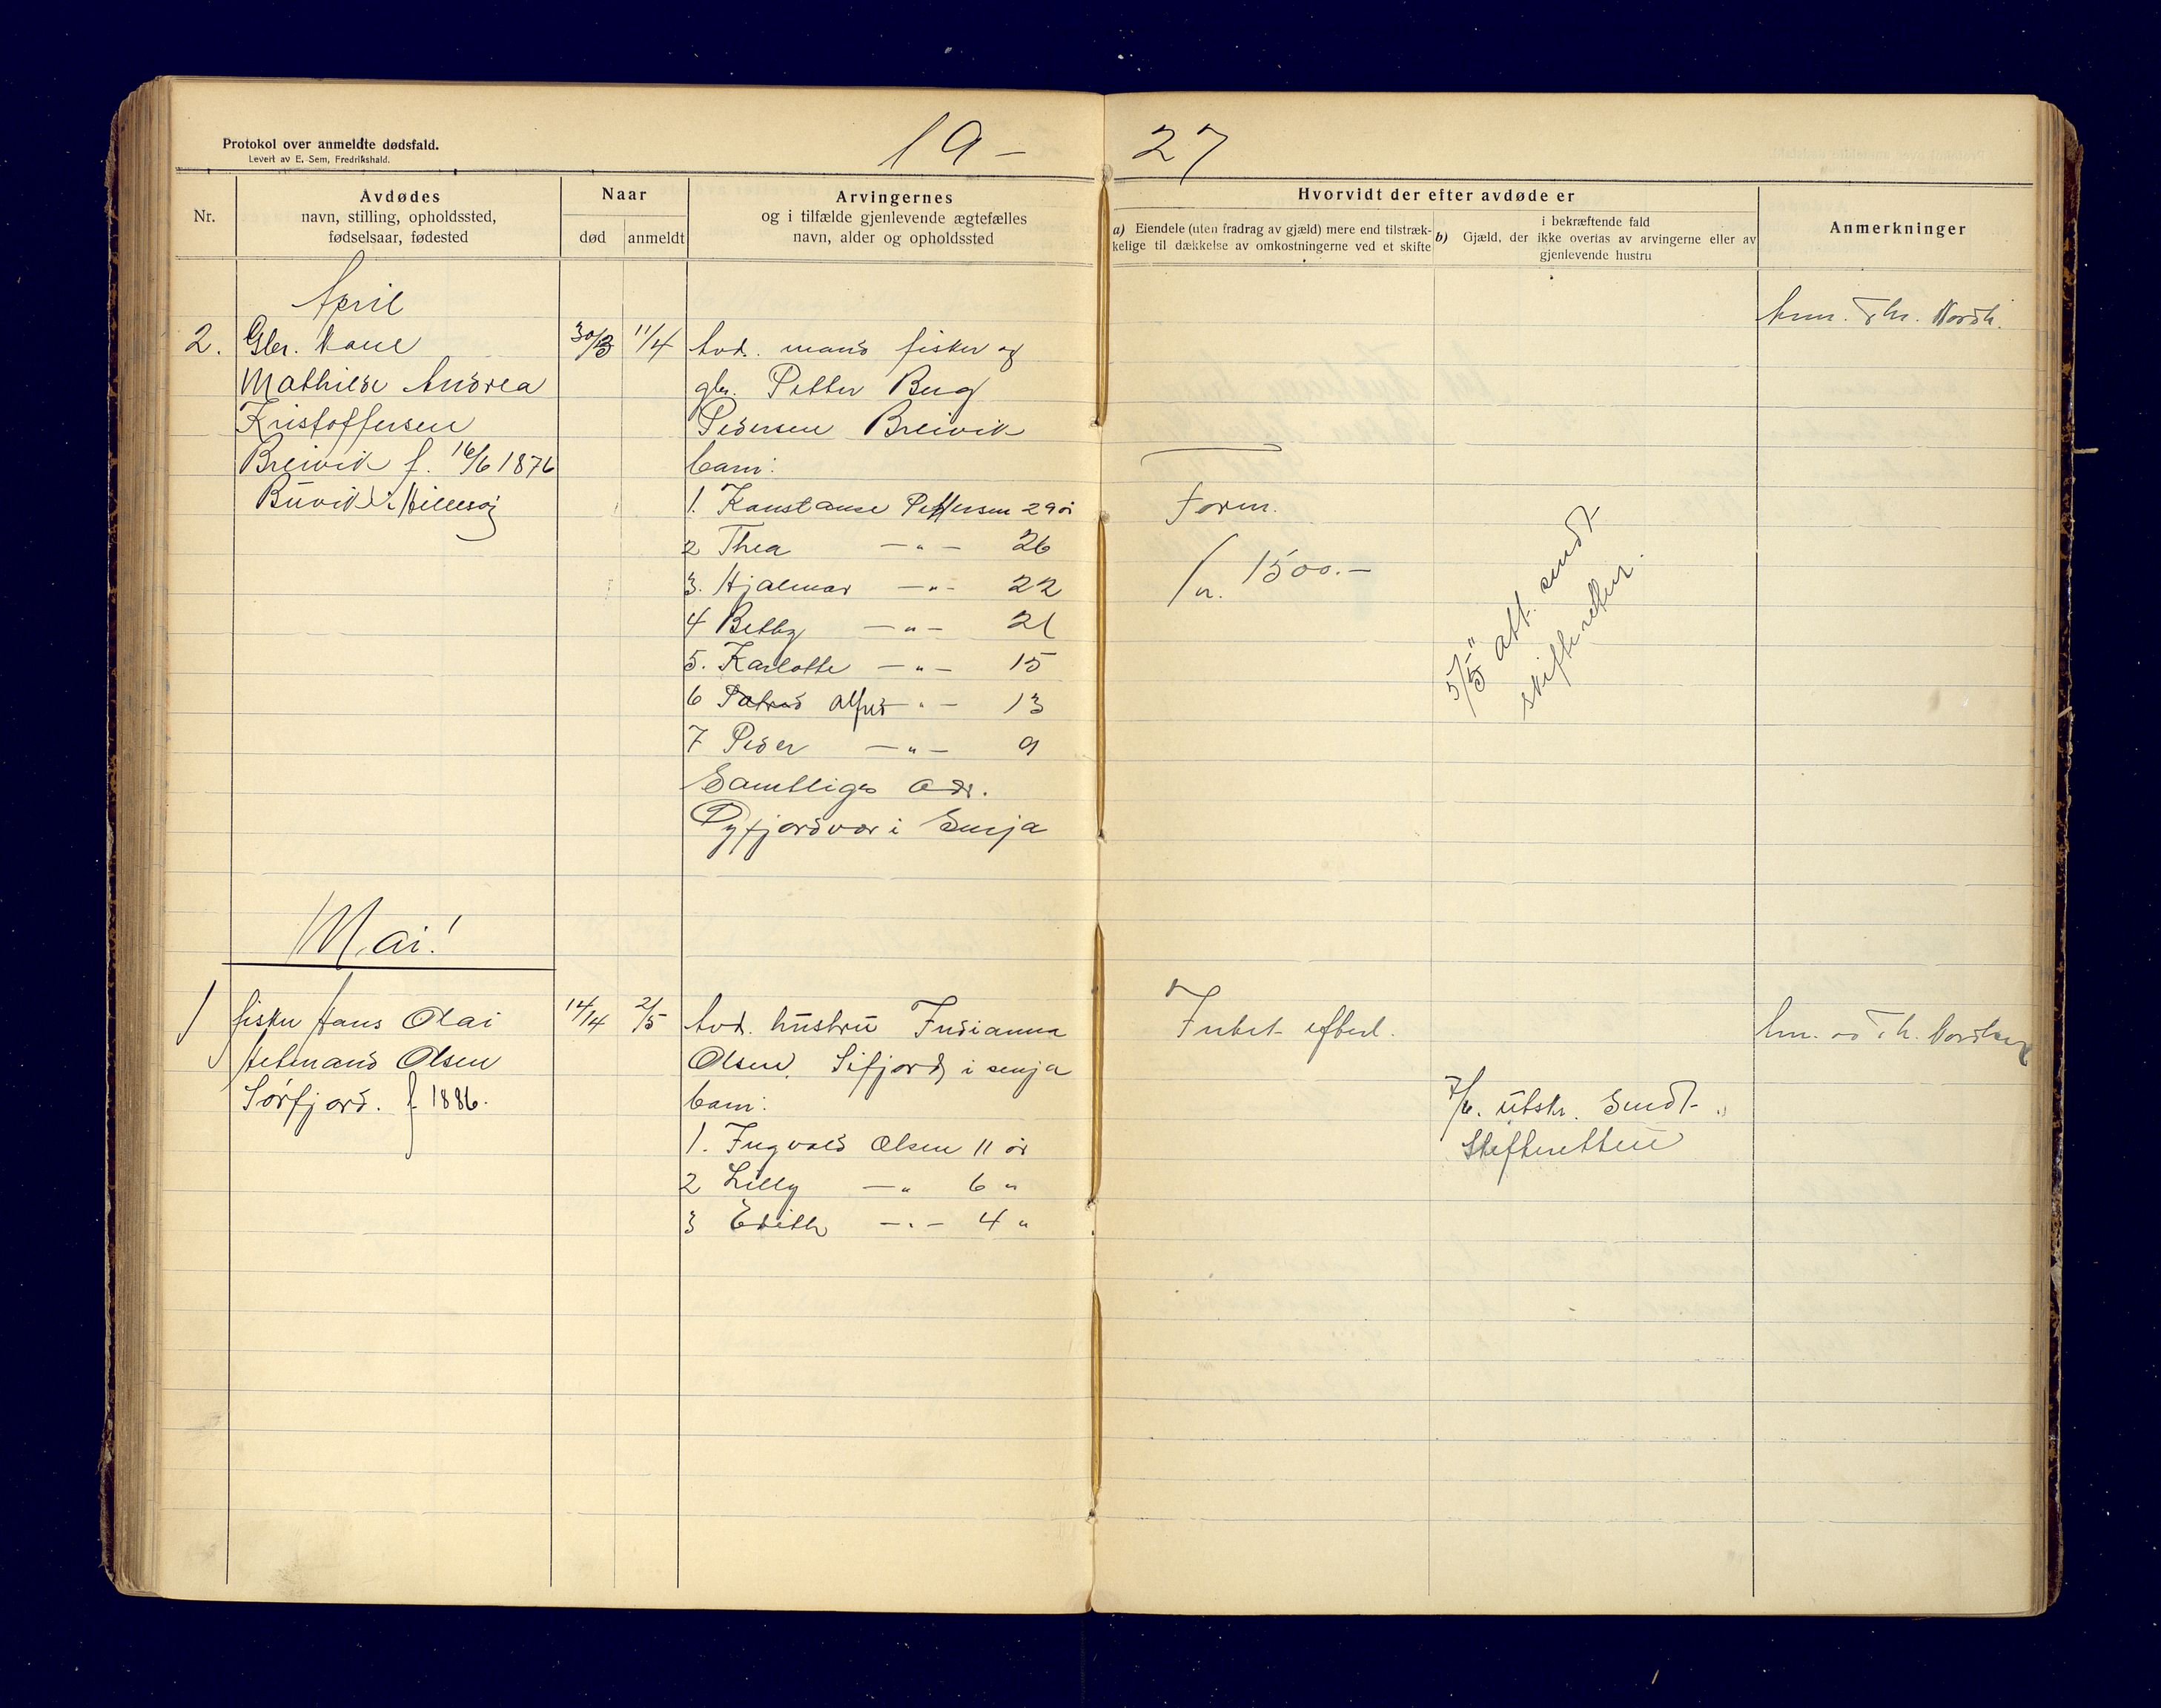 Protokol over anmeldte dødsfald.
Levert av E. Sem, Fredrikshald.
19 – 27
Nr.
Avdødes
navn, stilling, opholdssted,
fødselsaar, fødested
Naar
død
anmeldt
Arvingernes
og i tilfælde gjenlevende ægtefælles
navn, alder og opholdssted
Hvorvidt der efter avdøde er
a) Eiendele (uten fradrag av gjæld) mere end tilstræk-
kelige til dækkelse av omkostningerne ved et skifte
i bekræftende fald
b) Gjæld, der ikke overtas av arvingerne eller av
gjenlevende hustru
Anmerkninger
April
2. Gbr. Kone
Mathilde Andrea
Kristoffersen
Breivik f. 16/6 1876
Buvik i Hillesøy
30/3
11/4
Avd. mand fisker og
gbr. Petter Berg
Pedersen Breivik
barn:
1. Konstanse Pettersen 29 år
2 Thea —"— 26
3. Hjalmar —"— 22
4 Betty —"— 21
5. Karlotte —"— 15
6 Alfred —"— 13
7 Peder —"— 9
Samtliges adr.
Øyfjordvær i Senja
Form.
kr. 1500.–
5/5 att. sendt
skifteretten.
Anm. Thr. Nordh.
Mai!
1 fisker Hans Olai
Hetmand Olsen
Sørfjord. f 1886.
14/4
2/5
Avd. hustru Indianna
Olsen, Sifjord i senja
barn:
1. Ingvald Olsen 11 år
2 Lilly —" 6 "
3 Edith —"— 4 "
Intet efterl.
7/6. utskr. Sendt
Skifteretten
Anm. av Th. Nordhaug